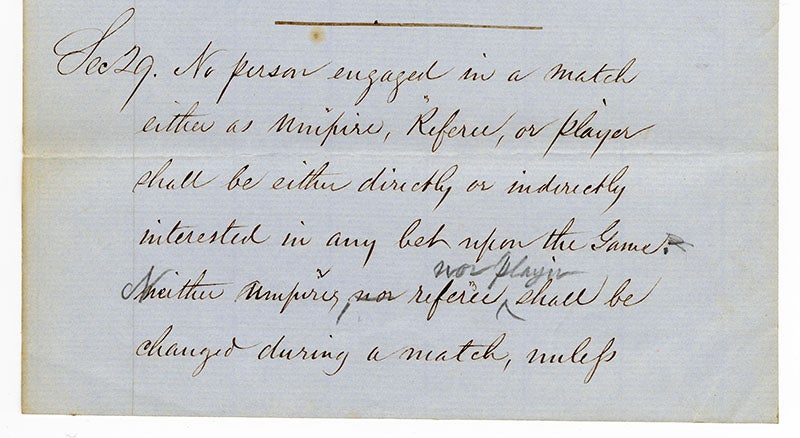 Sec 29. No person engaged in a match
either as Umpire, Referee, or player
shall be either directly or indirectly
interested in any bet upon the Game.
nor player
Neither Umpires, nor referee shall be
changed during a match, unless